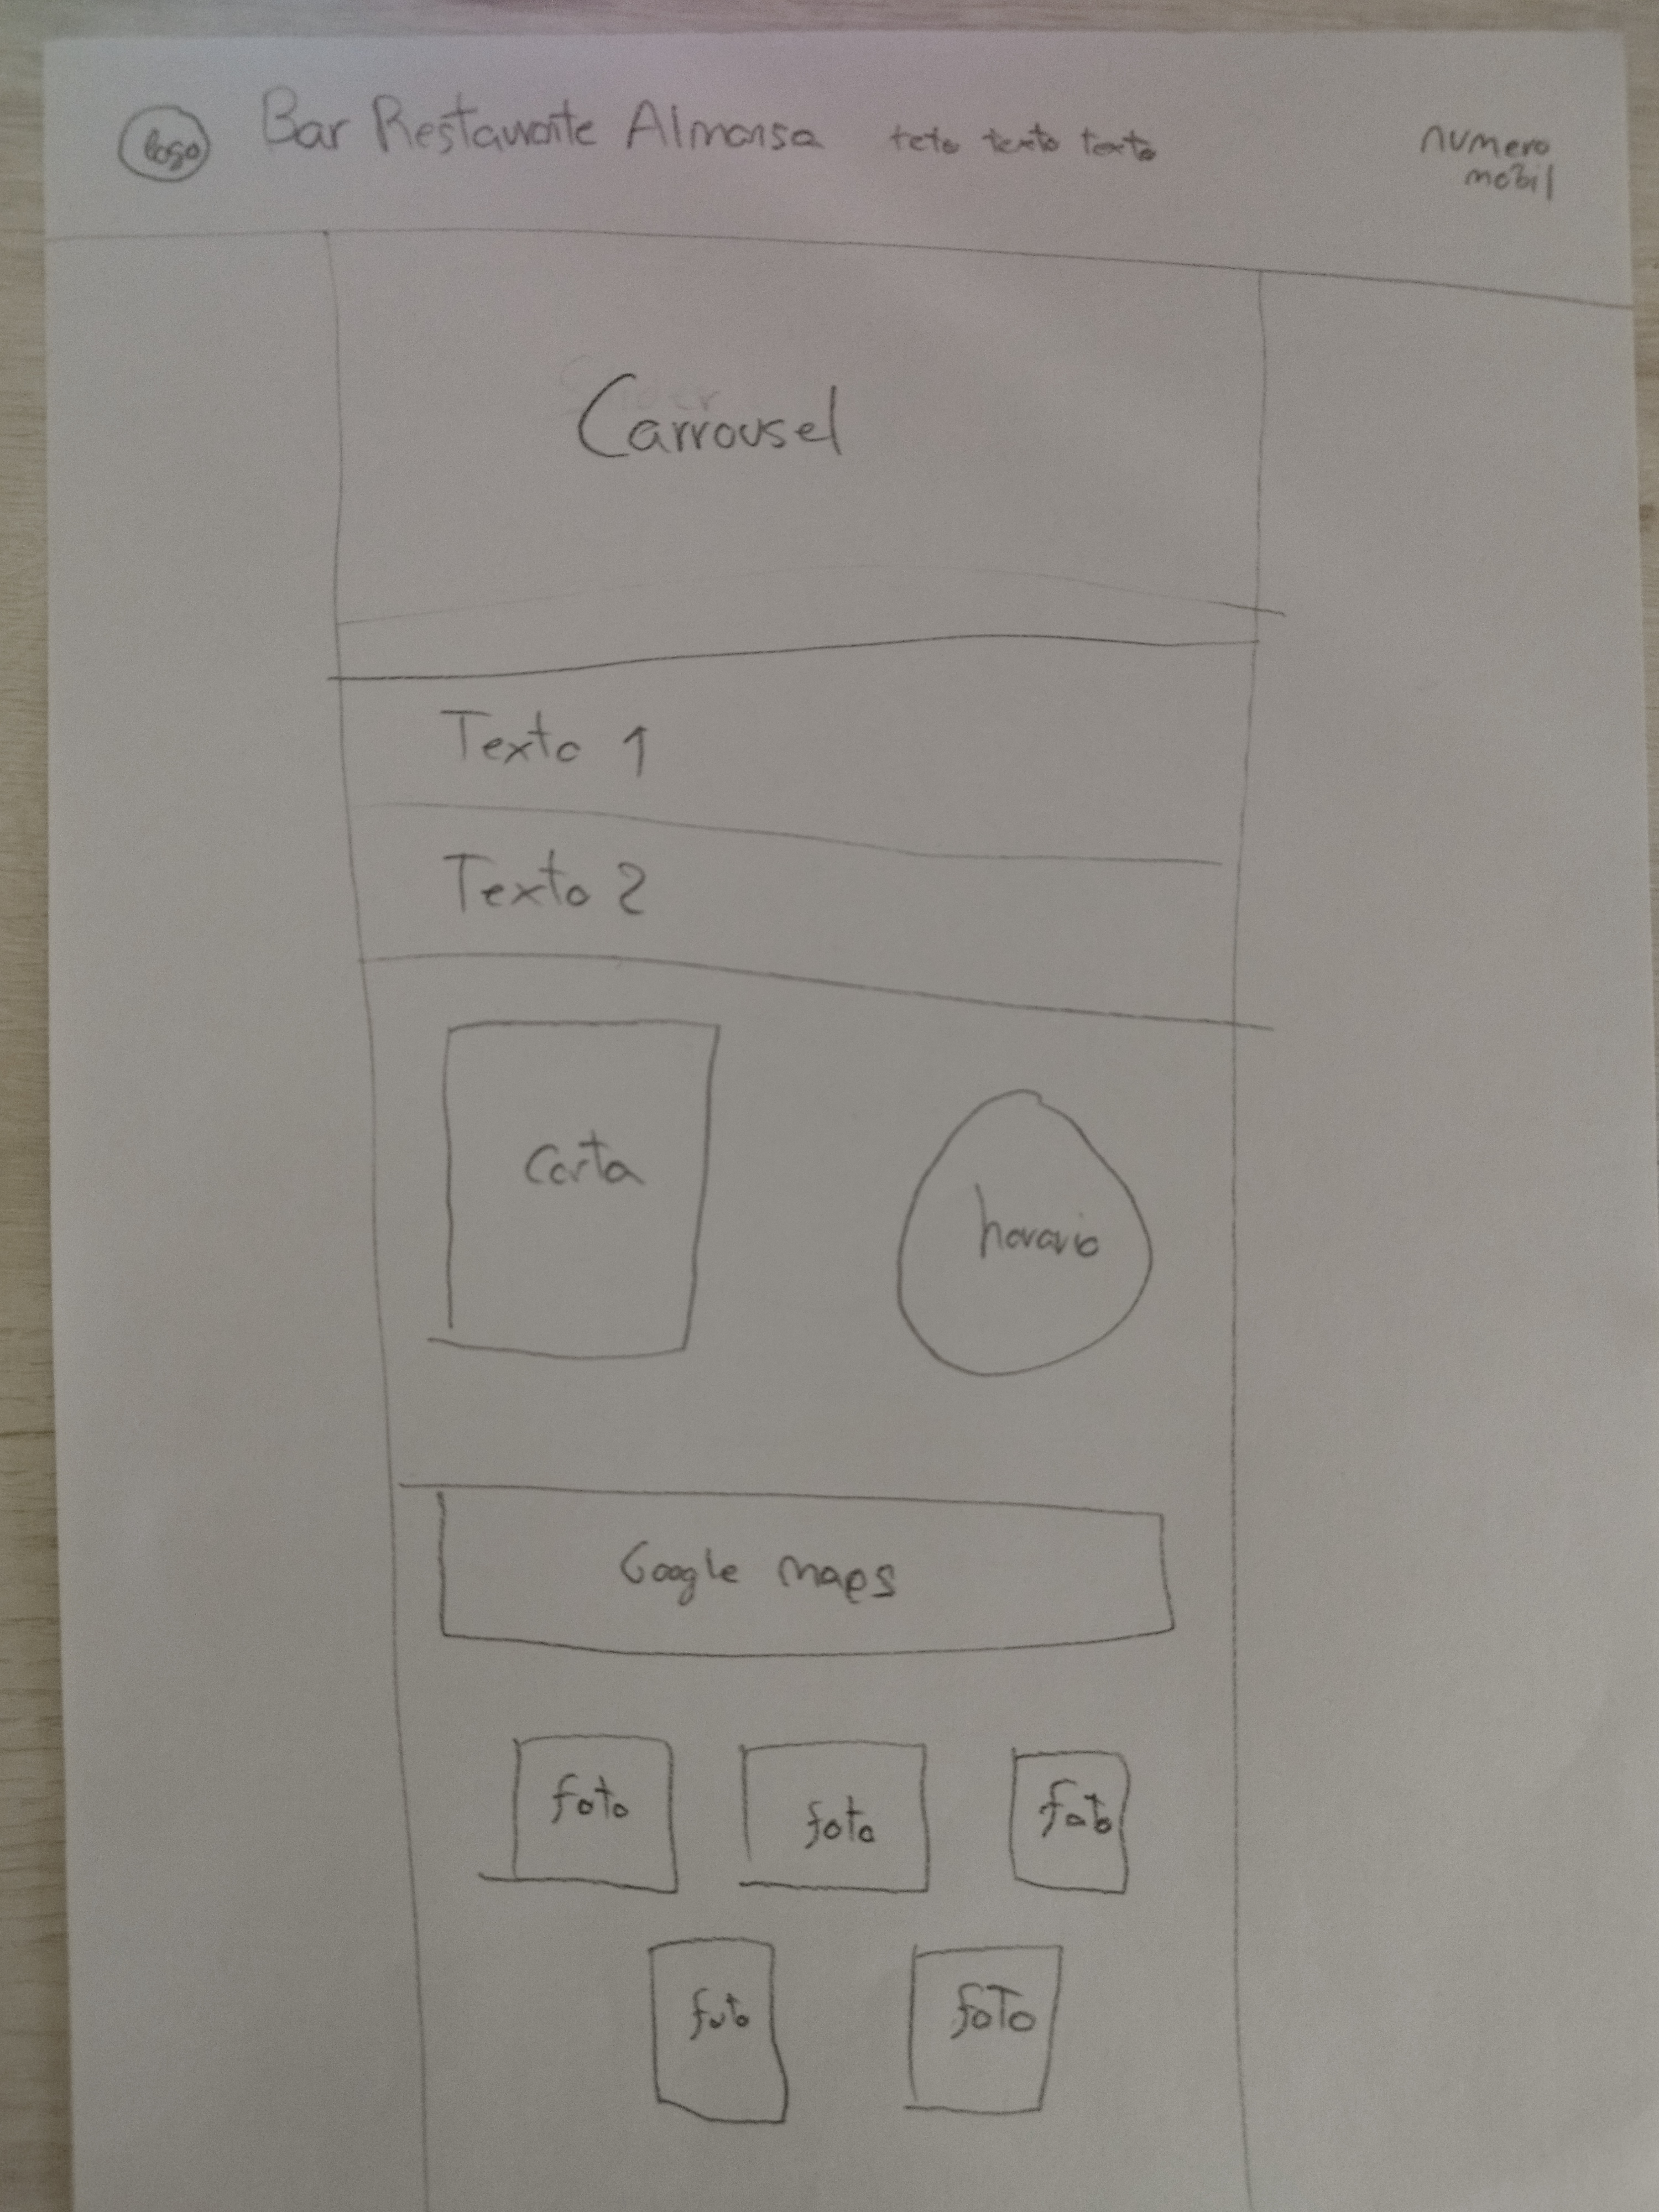 logo Bar Restaurante Almansa teto texto texto numero
mobil
Carrousel
Texto 1
Texto 2
Carta
horario
Google maps
foto foto foto
foto foto